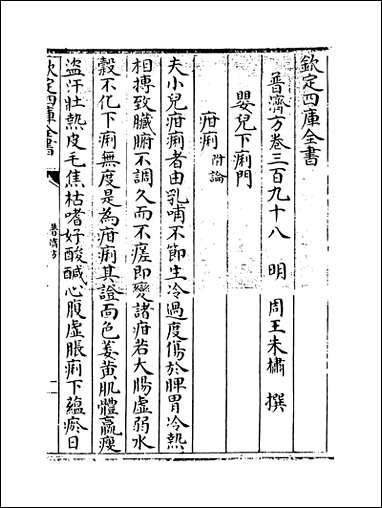 欽定四庫全書
普濟方卷三百九十八 明 周王朱橚 撰
嬰兒下痢門
疳痢 附論
夫小兒疳痢者由乳哺不節生冷過度傷於脾胃冷熱
相搏致臟腑不調久而不瘥即變諸疳若大腸虛弱水
穀不化下痢無度是為疳痢其證面色萎黄肌體羸瘦
盗汗壯熱皮毛焦枯嗜好酸鹹心腹虛脹痢下蘊瘀日
欽定四庫全書
普濟方
二